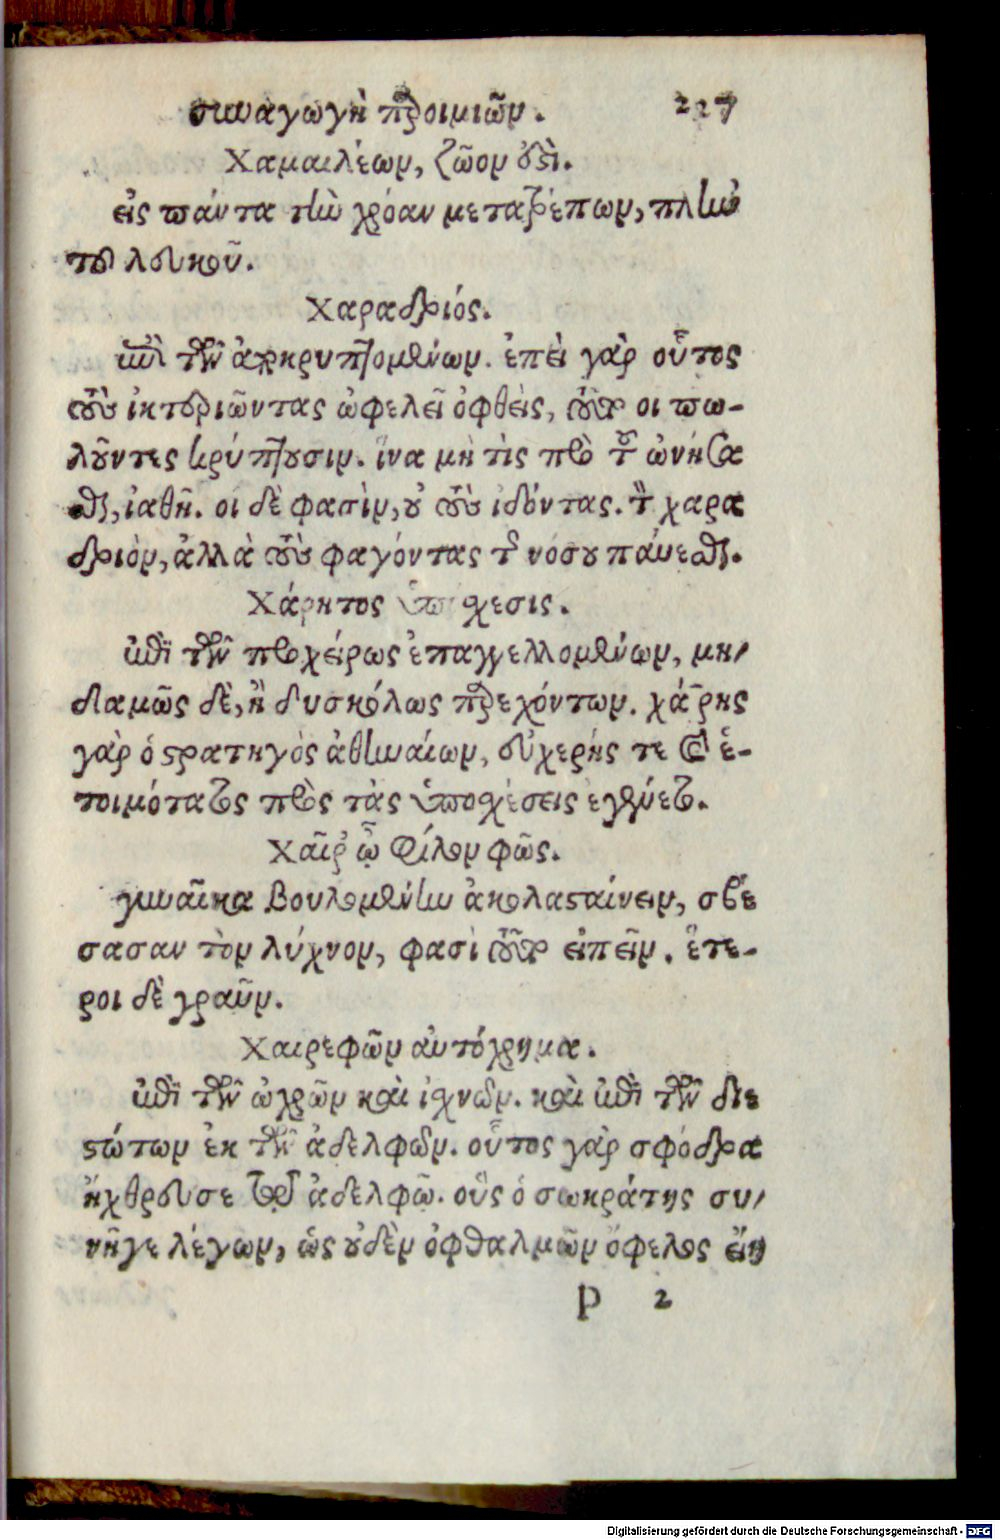 συναγωγὴ παροιμιῶν. 227
Χαμαιλέων, ζῶον ὅδὶ.
εἰς πάντα τὴν χρόαν μετατρέπων, πλὴν
τοῦ λευκοῦ.
Χαραδριός.
ἐπὶ τῶν ἀποκρυπτομένων. ἐπεὶ γὰρ οὗτος
τοὺς ἰκτεριῶντας ὠφελεῖ ὀφθεὶς, τοῦτον οἱ πω-
λοῦντες κρύπτουσιν. ἵνα μὴ τὶς πρὸ τοῦ ὠνήσα
σθαι, ἰαθῆ. οἱ δὲ φασὶν, οὐ τοὺς ἰδόντας. τὸν χαρα
δριὸν, ἀλλὰ τοὺς φαγόντας τῆς νόσου παύεσθαι.
Χάρητος ὑποσχεσις.
ἐπὶ τῶν προχείρως ἐπαγγελλομένων, μη-
δαμῶς δὲ, ἢ δυσκόλως παρεχόντων. χάρης
γὰρ ὁ στρατηγὸς ἀθηναίων, εὐχερής τε καὶ ἑ-
τοιμότατος πρὸς τὰς ὑποσχέσεις ἐγένετο.
Χαῖρ' ὦ φίλον φῶς.
γυναῖκα βουλομένην ἀκολασταίνειν, σβέ
σασαν τὸν λύχνον, φασὶ τοῦτον εἰπεῖν. ἕτε-
ροι δὲ γραῦν.
Χαιρεφῶν αὐτόχρημα.
ἐπὶ τῶν ὠχρῶν καὶ ἰσχνῶν. καὶ ἐπὶ τῶν διε
στώτων ἐκ τῶν ἀδελφῶν. οὗτος γὰρ σφόδρα
ἤχθρευσε τῷ ἀδελφῷ. οὓς ὁ σωκράτης συ-
νῆγε λέγων, ὡς οὐδὲν ὀφθαλμῶν ὄφελος εἴη
P 2
Digitalisierung gefördert durch die Deutsche Forschungsgemeinschaft - DFG